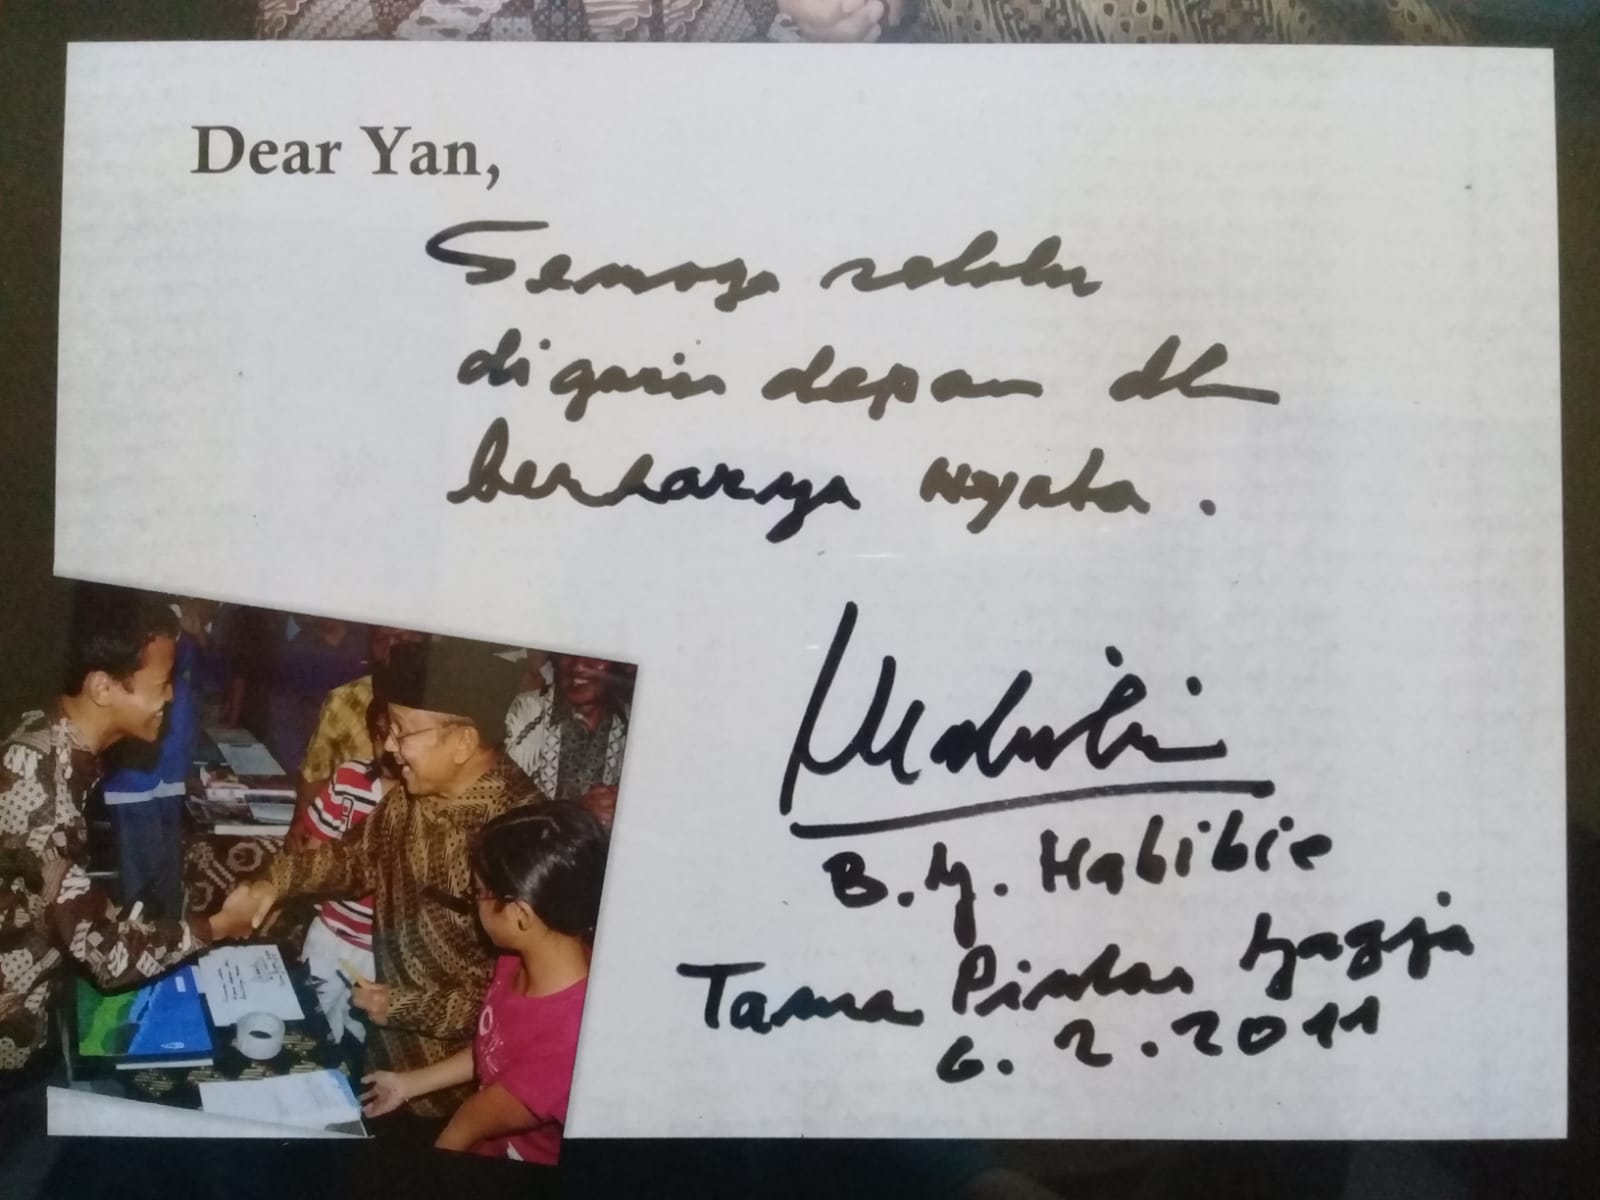 Dear Yan,
Semoga selalu
di garis depan dl
berkarya nyata.
B.J. Habibie
Taman Pintar Yogja
6.2.2011